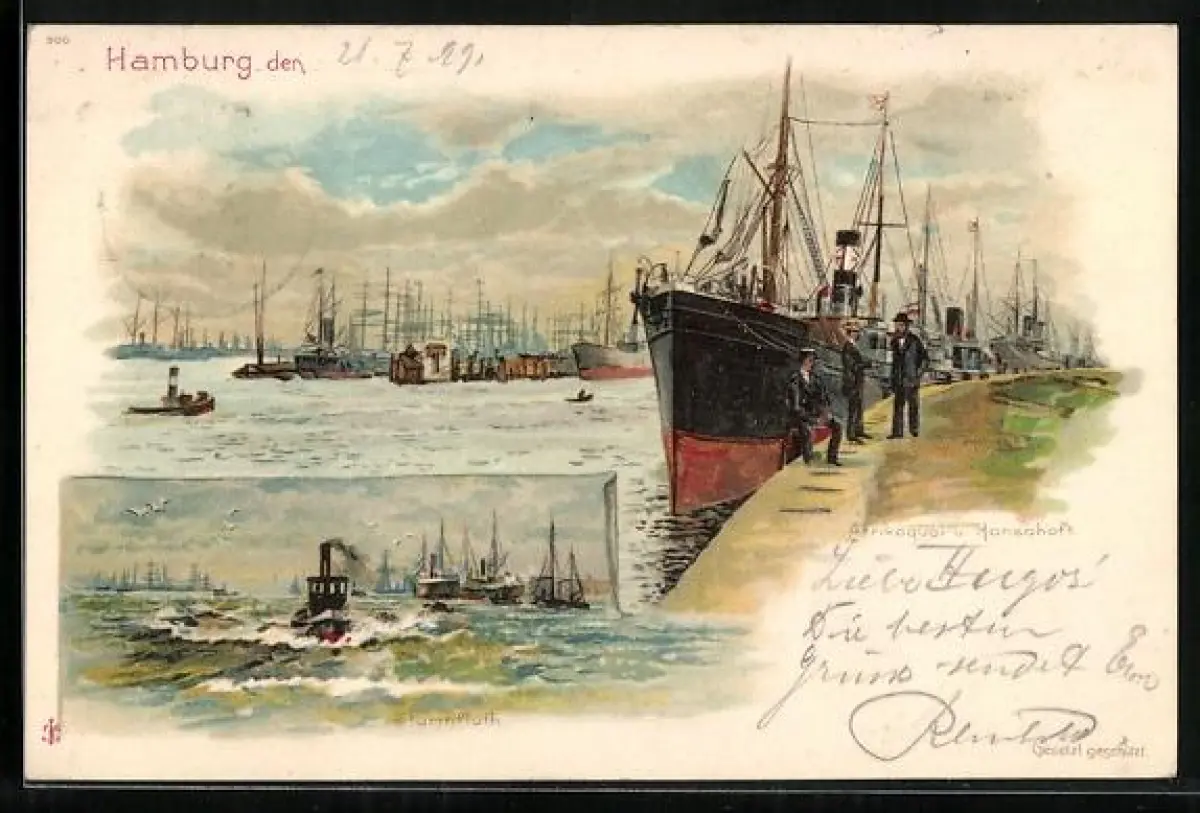 500
Hamburg den 21. 7. 99.
Afrikaquai u. Hansahöft.
Liebe Hugos'
Die besten
Grüsse sendet
Sturmfluth
Gesetzl. geschützt.